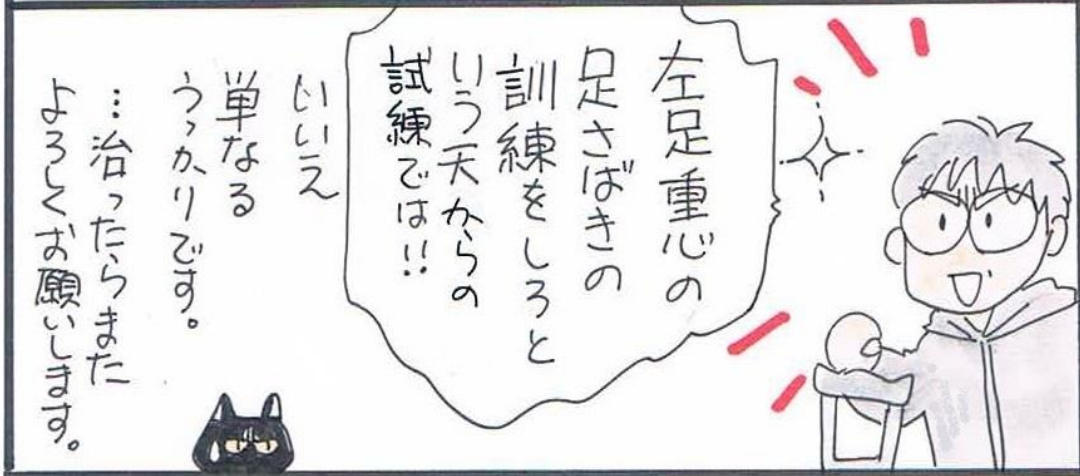 左足重心の
足さばきの
訓練をしろと
いう天からの
試練では!!
いいえ
単なる
うっかりです。
…治ったらまた
よろしくお願いします。